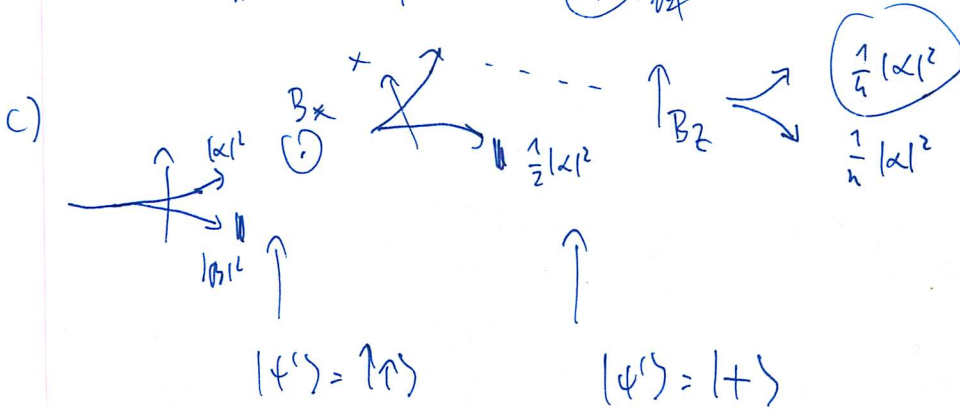 c)
|α|²
|β|²
Bx
+
½|α|²
Bz
¼|α|²
¼|α|²
|ψ'⟩ = |↑⟩
|ψ'⟩ = |+⟩